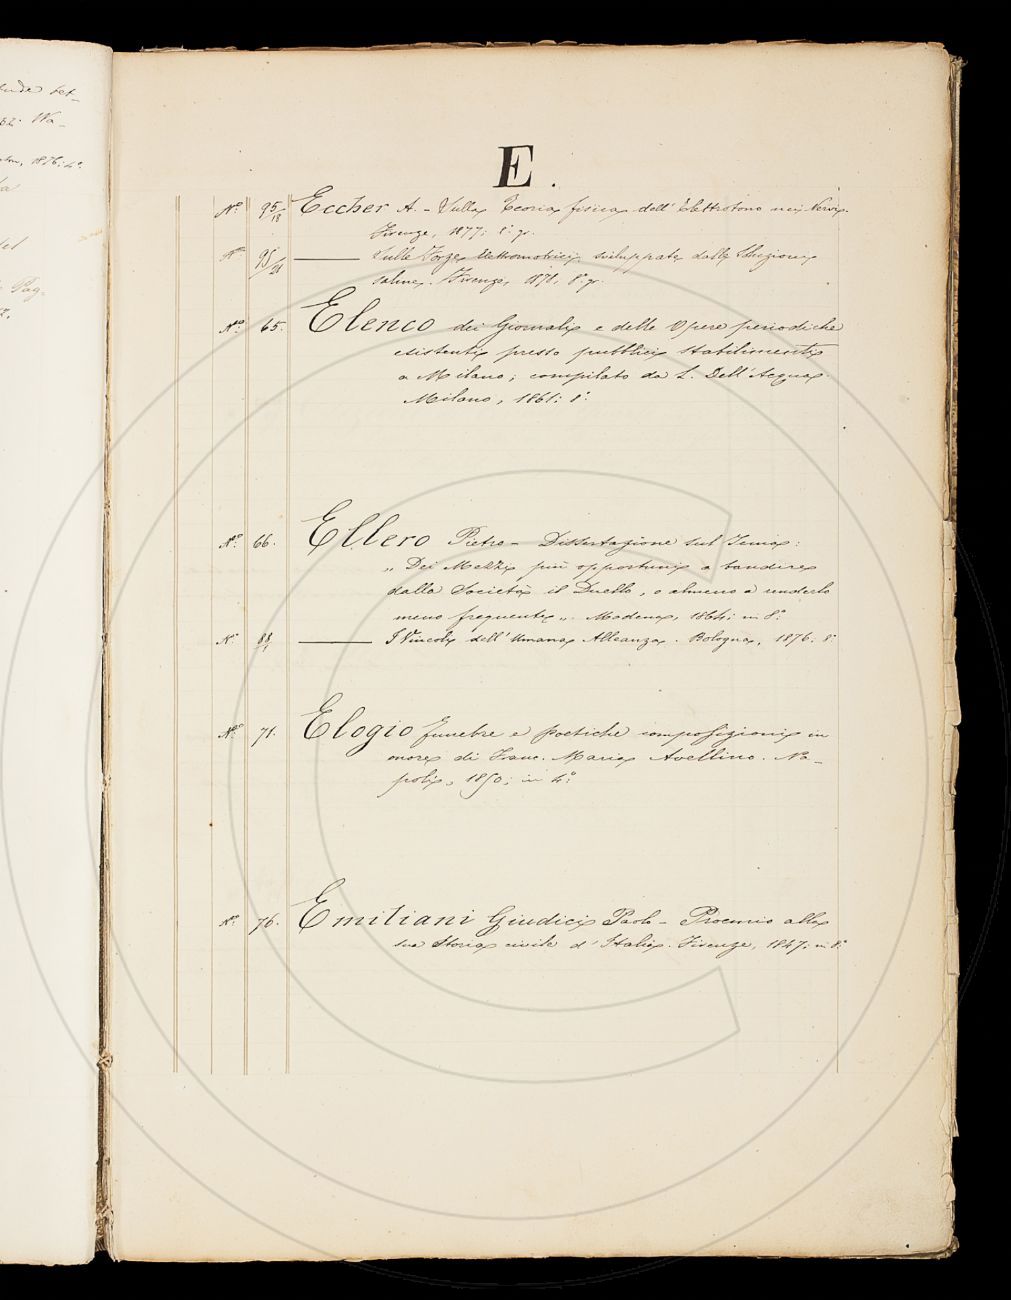 tudes bet-
Wa-
1876: 4°
Pag-
E.
N° 95/18 Eccher A. - Sulla Teoria fisica dell'Elettrotono nei Nervi.
Firenze, 1877; 8° gr.
N° 95/21 ——— Sulle Forze Elettromotrici sviluppate dalle Soluzioni
saline. Firenze, 1878, 8° gr.
N° 65. Elenco dei Giornali e delle Opere periodiche
esistenti presso pubblici stabilimenti
a Milano; compilato da L. Dell'Acqua.
Milano, 1861; 8°.
N° 66. Ellero Pietro - Dissertazione sul Tema:
„ Dei Mezzi più opportuni a bandire
dalla Società il Duello, o almeno a renderlo
meno frequente „. Modena, 1864; in 8°
N° 88/1 ——— I Vincoli dell'Umana Alleanza. Bologna, 1876: 8°
N° 71. Elogio funebre e poetiche composizioni in
onore di Franc. Maria Avellino. Na-
poli, 1850; in 4°:
N° 76. Emiliani Giudici Paolo - Proemio alla
sua Storia civile d'Italia. Firenze, 1847; in 8°